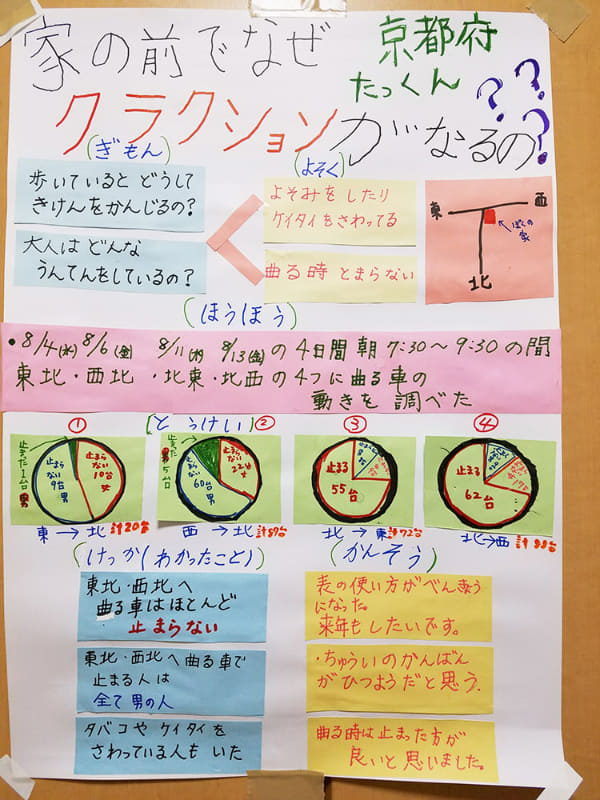 家の前でなぜ
京都府
たっくん
クラクションがなるの???
(ぎもん)
歩いていると どうして
きけんをかんじるの?
大人は どんな
うんてんをしているの?
(よそく)
よそみを したり
ケイタイをさわってる
曲る時 とまらない
東 西
ぼくの
家
北
(ほうほう)
・8/4(水) 8/6(金) 8/11(水) 8/13(金)の 4日間 朝 7:30〜9:30 の間
東北・西北・北東・北西の4つに曲る車の
動きを調べた
(とうけい)
①
止まった1台 男
止まらない 9台 男
止まらない 10台 女
東→北 計20台
②
止まった 男 5台
止まらない 60台 男
止まらない 22台 女
西→北 計87台
③
止まる
55台
北→東 計72台
④
止まる
62台
北→西 計88台
(けっか(わかったこと)
東北・西北へ
曲る車はほとんど
止まらない
東北・西北へ曲る車で
止まる人は
全て 男の人
タバコや ケイタイを
さわっている人も いた
(かんそう)
表の使い方がべんきょう
になった。
来年もしたいです。
・ちゅういのかんばん
がひつようだと思う.
曲る時は止まった方が
良いと思いました。